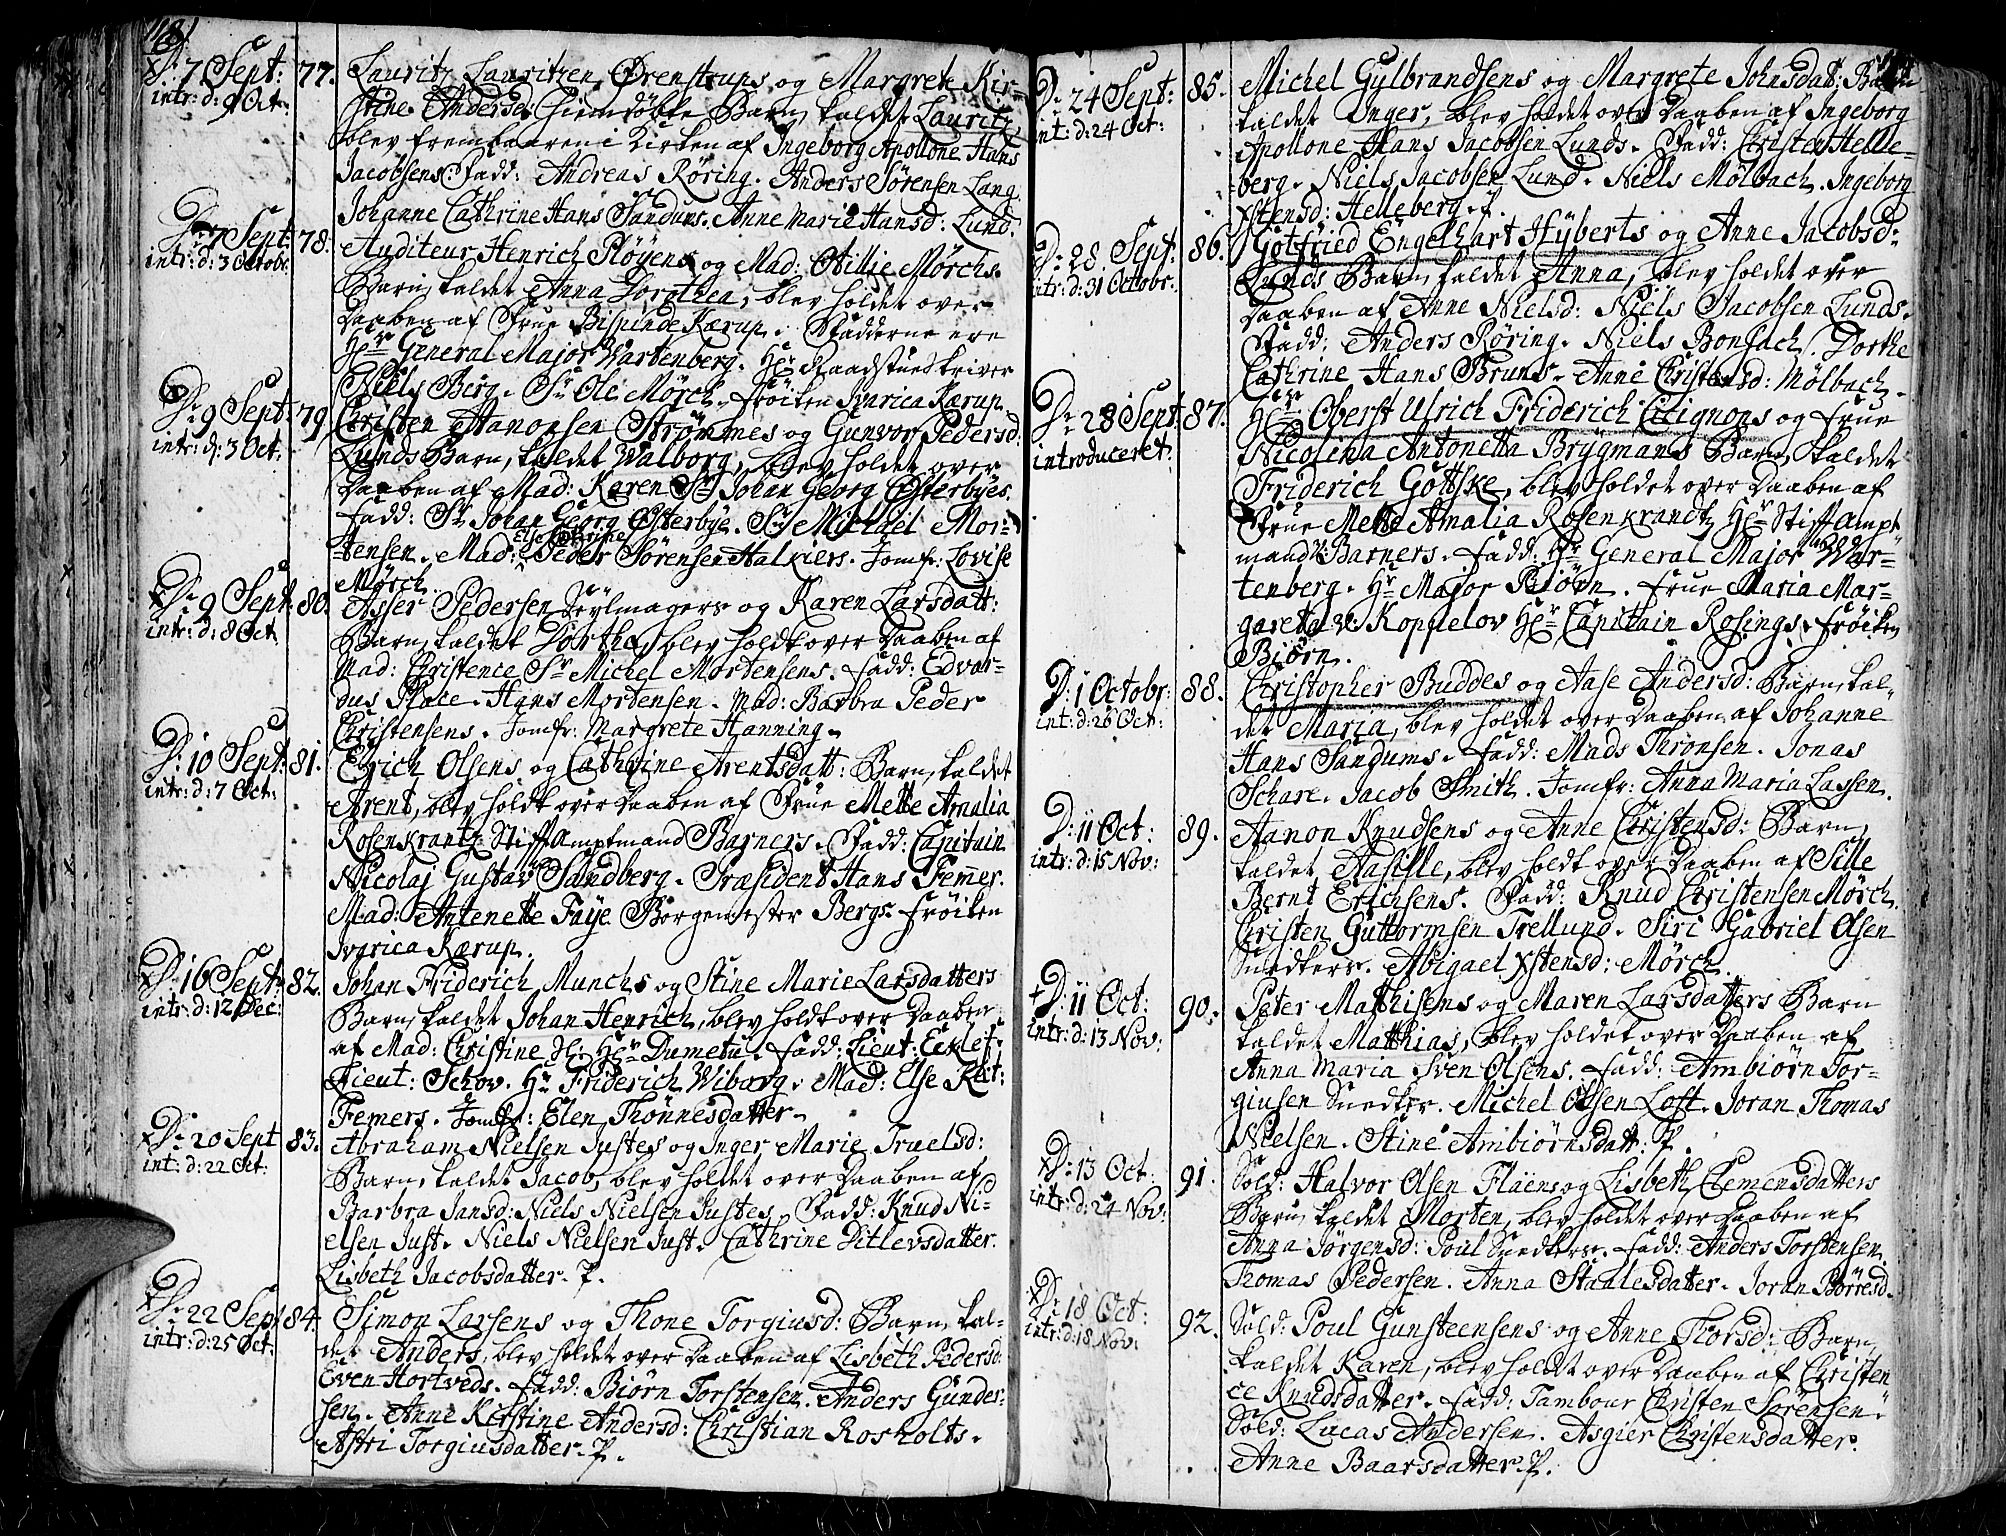 118
D: 7 Sept: 77. Lauritz Lauritzen Ørenstrups og Margrete Kir=
intr: d: 9 Oct: stine Andersd: hiemdøbte Barn, kaldet Lauritz,
blev frembaaren i Kirken af Ingeborg Apollone Hans
Jacobsens. Fadd: Andreas Røring. Anders Sørensen Lang.
Johanne Cathrine Hans Sandums. Anne Marie Hansd: Lund.
D: 7 Sept: 78. Auditeur Henrich Pløyens og Mad: Otillie Mörchs
intr: d: 3 Octobr. Barn, kaldet Anna Dorothea, blev holdet over
Daaben af Frue Bispinde Kærup. Fadderne ere
Hr General Major Wartenberg. Hr Raadstueskriver
Niels Berg. Sr Ole Mörch. Frøiken Ivarica Kærup.
D: 9 Sept: 79. Christen Aanonsen Strømmes og Gunvor Pedersd:
intr: d: 3 Oct: Lunds Barn, kaldet Walborg, blev holdet over
Daaben af Mad: Karen Sr Johan Georg Østerbyes.
Fadd: Sr Johan Georg Østerbye. Sr Michael Mor=
tensen. Mad: Else Cathrine Peder Sørensen Halkiers. Jomfr: Lovise
Mörch.
D: 9 Sept: 80. Asser Pedersen Seylmagers og Karen Larsdatt:
intr: d: 8 Oct Barn, kaldet Dorthe, blev holdt over Daaben af
Mad: Christence Sr Michel Mortensens. Fadd: Edvar=
dus Place. Hans Mortensen. Mad: Barbra Peder
Christensens. Jomfr: Margrete Hanning.
D: 10 Sept: 81. Erich Olsens og Cathrine Arentsdatt: Barn, kaldet
intr: d: 7 Oct: Arent, blev holdt over Daaben af Frue Mette Amalia
Rosenkrantz Stiftamptmand Barners. Fadd: Capitain
Nicolaj Gustav Sandberg. Præsident Hans Femer.
Mad: Antenette Faye Borgemester Bergs. Frøiken
Ivarica Kærup.
D: 16 Sept: 82. Johan Friderich Munchs og Stine Marie Larsdatters
intr: d: 12 Dec: Barn, kaldet Johan Henrich, blev holdt over Daaben
af Mad: Christine Hr Dumetu. Fadd: Lieut: Ecklef.
Lieut: Schov. Hr Friderich Wiborg. Mad: Else
Femers. Jomfr: Elen Thönnesdatter.
D: 20 Sept 83. Abraham Nielsen Justes og Inger Marie Truelsd:
int: d: 22 Oct: Barn, kaldet Jacob, blev holdet over Daaben af
Barbra Jansd: Niels Nielsen Justes. Fadd: Knud Ni=
elsen Just. Niels Nielsen Just. Cathrine Ditlevsdatter.
Lisbeth Jacobsdatter. P.
D: 22 Sept 84. Simon Larsens og Thone Torgiusd: Barn, kal=
intr: d: 25 Oct: det Anders, blev holdet over Daaben af Lisbeth Pedersd:
Even Hortveds. Fadd: Biørn Torstensen. Anders Gunder=
sen. Anne Kirstine Andersd: Christian Rosholts.
Astri Torgiusdatter. P.
D: 24 Sept: 85. Michel Gulbrandsens og Margrete Johnsdat: Barn
int: d: 24 Oct: kaldet Inger, blev holdet over Daaben af Ingeborg
Apollone Hans Jacobsen Lunds. Fadd: Christen Helle=
berg. Niels Jacobsen Lund. Niels Mølbach. Ingeborg
Xstensd: Helleberg. P.
D: 28 Sept: 86. Gotfried Engelhart Hyberts og Anne Jacobsd:
intr: d: 31 Octobr: Lunds Barn, kaldet Anna, blev holdet over
Daaben af Anne Nielsd: Niels Jacobsen Lunds.
Fadd: Anders Röring. Niels Bonsach. Dorthe
Cathrine Hans Bruns. Anne Christensd: Mölbach.
D: 28 Sept: 87. Hr Oberst Ulrich Friderich Cicignons og Frue
introduceret: Nicolina Antonetta Brygmans Barn, kaldet
Friderich Gottske, blev holdet over Daaben af
Frue Mette Amalia Rosenkrandtz Hr Stiftampt
mand v: Barners. Fadd: Hr General Major War=
tenberg. Hr Major Biørn. Frue Maria Mar=
gareta v: Koppelov Hr Capitain Rosings. Frøiken
Biørn.
D: 1 Octobr: 88. Christopher Buddes og Aase Andersd: Barn, kal=
int: d: 26 Oct: det Maria, blev holdet over Daaben af Johanne
Hans Sandums. Fadd: Mads Thronsen. Jonas
Schare. Jacob Smith. Jomfr: Anna Maria Lassen.
D: 11 Oct: 89. Aanon Knudsens og Anne Christensd: Barn,
intr: d: 15 Nov: kaldet Aasille, blev holdt over Daaben af Sille
Bernt Erichsens. Fadd: Knud Christensen Mörch.
Christen Guttormsen Trellund. Siri Gabriel Olsen
Snedkers. Abigael Xstensd: Mörch.
D: 11 Oct: 90. Peter Mathisens og Maren Larsdatters Barn
intr: d: 13 Nov: kaldet Matthias, blev holdet over Daaben af
Anna Maria Sven Olsens. Fadd: Ambiörn Tor=
giusen Snedker. Michel Olsen Loft. Joran Thomas
Nielsen. Stine Ambiörnsdatt: P.
D: 13 Oct: 91. Sold: Halvor Olsen Flaens og Lisbeth Clemensdatters
intr: d: 24 Nov: Barn, kaldet Morten, blev holdet over Daaben af
Anna Jörgensd: Poul Snedkers. Fadd: Anders Torstensen.
Thomas Pedersen. Anna Staalesdatter. Joran Börresd.
D: 18 Oct: 92. Sold: Poul Gunsteensens og Anne Thorsd: Barn,
intr: d: 18 Nov: kaldet Karen, blev holdet over Daaben af Christen
ce Knudsdatter. Fadd: Tambour Christen Sörensen.
Sold: Lucas Andersen. Asgier Christensdatter.
Anne Baarsdatter. P.